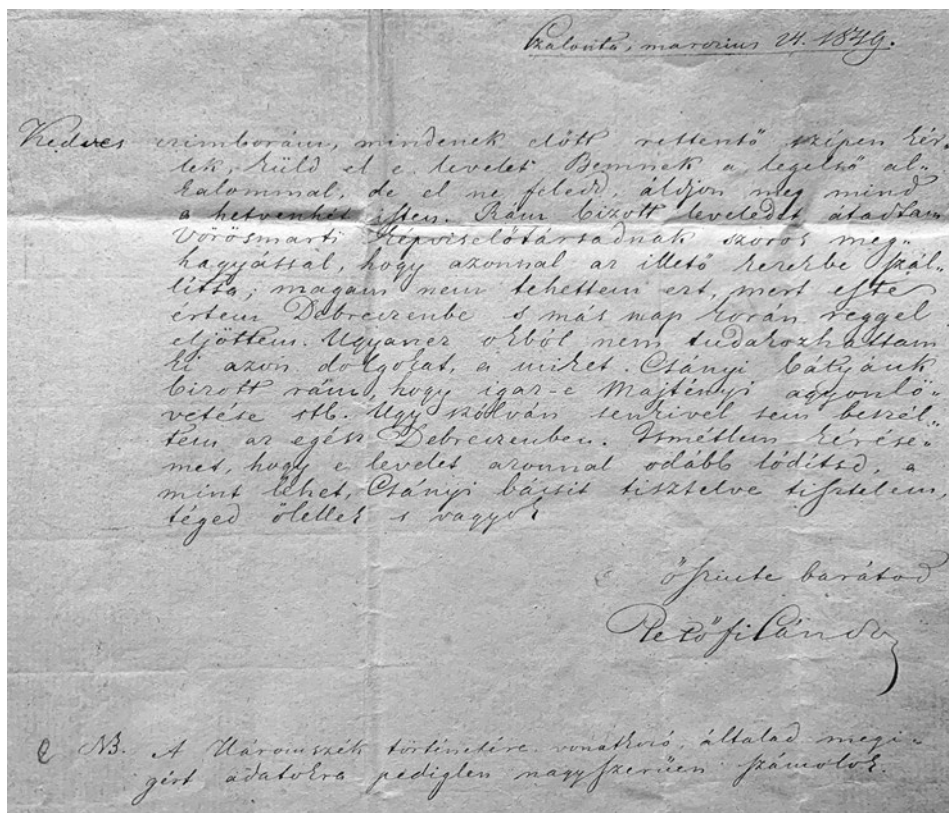 Szalonta, marczius 24. 1849.
Kedves czimborám, mindenek előtt rettentő szépen kér-
lek, küld el e levelet Bemnek a legelső al-
kalommal, de el ne feledd, áldjon meg mind
a hetvenhét isten. Rám bizott leveledet átadtam
Vörösmarti képviselőtársadnak szoros meg-
hagyással, hogy azonnal az illető kezekbe szál-
lítsa; magam nem tehettem ezt, mert este
értem Debreczenbe s más nap korán reggel
eljöttem. Ugyanez okból nem tudakozhattam
ki azon dolgokat, a miket Csányi bátyánk
bizott rám, hogy igaz-e Majtényi agyonlö-
vetése stb. Ugy szólván senkivel sem beszél-
tem az egész Debreczenben. Ismétlem kérése-
met, hogy e levelet azonnal odább lódítsd, a
mint lehet, Csányi bácsit tisztelve tisztelem,
téged ölellek s vagyok
őszinte barátod
Petőfi Sándor
NB. A Háromszék történetére vonatkozó, általad megi-
gért adatokra pediglen nagyszerüen számolok.